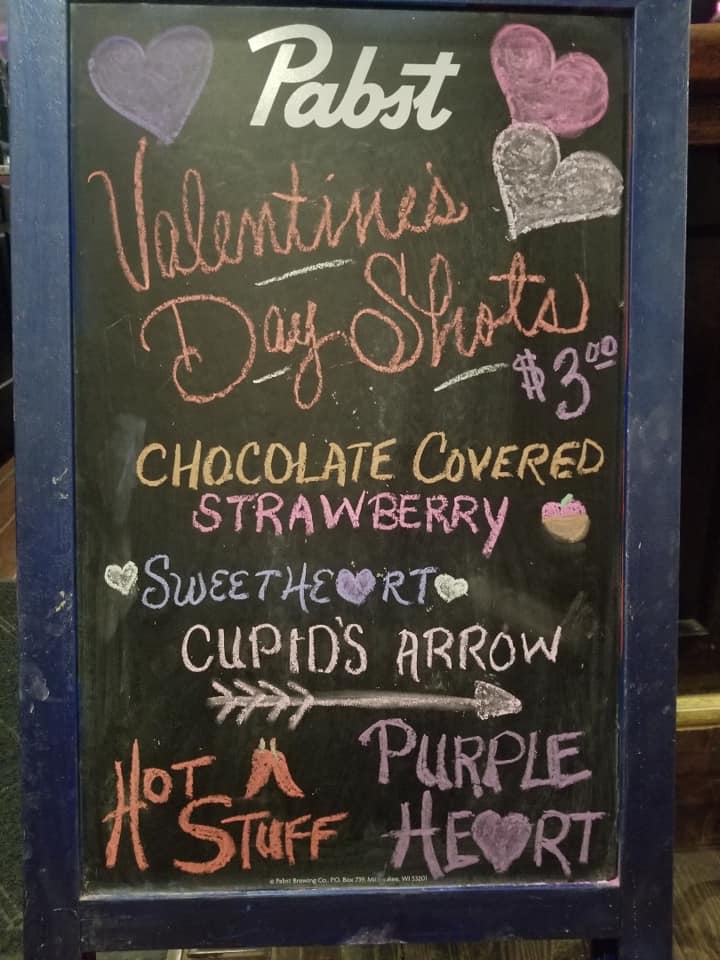 Pabst
Valentine's
Day Shots
$3.00
CHOCOLATE COVERED
STRAWBERRY
SWEETHE♥RT
CUPID'S ARROW
HOT
STUFF
PURPLE
HE♥RT
© Pabst Brewing Co., P.O. Box 739, Milwaukee, WI 53201